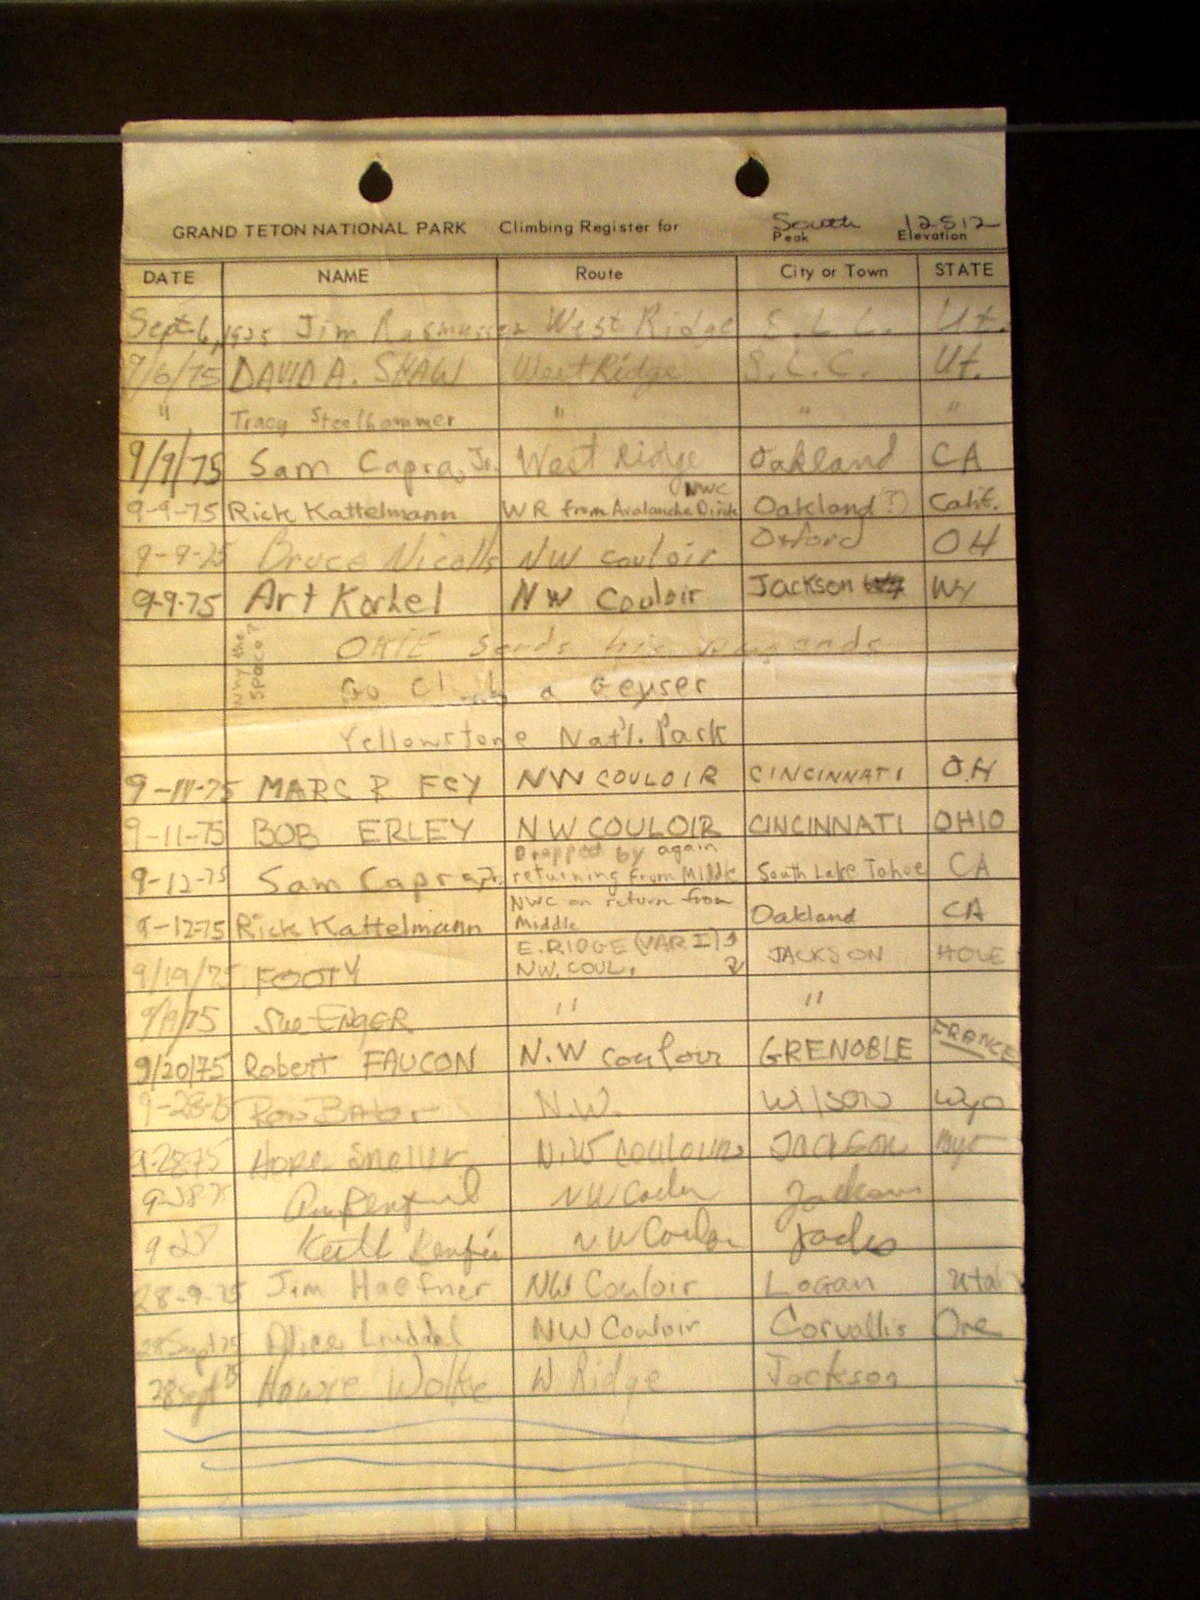 GRAND TETON NATIONAL PARK Climbing Register for South Peak 12512 Elevation
DATE NAME Route City or Town STATE
Sept. 6, 1975 Jim Rasmussen West Ridge S.L.C. Ut.
9/6/75 DAVID A. SHAW West Ridge S.L.C. Ut.
" Tracy Steelhammer " " "
9/9/75 Sam Capra, Jr. West Ridge Oakland CA
NWC
9-9-75 Rick Kattelmann WR from Avalanche Divide Oakland (?) Calif.
9-9-75 Bruce Nicolls NW couloir Oxford OH
9-9-75 Art NW Couloir Jackson WY
Why the space?
OKIE Sends his
Go Climb a Geyser
Yellowstone Nat'l. Park
MARC R FEY NW COULOIR CINCINNATI OH
9-11-75 BOB ERLEY NW COULOIR CINCINNATI OHIO
Dropped by again
9-12-75 Sam Capra, Jr. returning from Middle South Lake Tahoe CA
NWC on return from
9-12-75 Rick Kattelmann Middle Oakland CA
E. RIDGE (VAR I) ↑
9/19/75 FOOTY NW. COUL. JACKSON HOLE
9/19/75 Sue ENGER " "
9/20/75 Robert FAUCON N.W couloir GRENOBLE FRANCE
9-28-75 Ron N.W. WILSON Wyo
9-28-75 Hope Sneller N.W couloir JACKSON Wyo
9-28-75 NW Jackson
9-28 Keith NW
28-9-75 Jim Haefner NW Couloir Logan Utah
28 Sept 75 Alice Liddel NW Couloir Corvallis Ore
28 Sept 75 Howie Wolke W Ridge Jackson